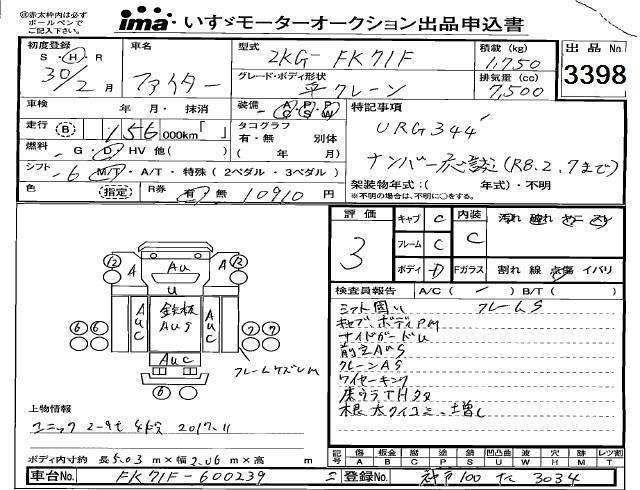 ㊟赤太枠内は必ず
ボールペンで
ご記入下さい。
ima いすゞモーターオークション出品申込書
初度登録 S・H・R 30/2月
車名 ファイター
型式 2KG-FK71F
積載(kg) 1,750
出品No. 3398
グレード・ボディ形状 平クレーン
排気量(cc) 7,500
車検 年 月・抹消
装備 AC PS PW
特記事項
URG344
走行 B 156 000km「 」
タコグラフ 有・無 別体 ( 年 月)
ナンバー応談(R8.2.7まで)
燃料 G・D・HV 他( )
シフト 6 M/T・A/T・特殊(2ペダル・3ペダル)
架装物年式:( 年式)・不明
※不明の場合は、不明に○をする。
色 (指定) R券 有 無 10910円
評価 3
キャブ C 内装 C
フレーム C
ボディ D Fガラス 割れ 線 点傷 イバリ
検査員報告 A/C( ) B/T( )
シフト固い フレームS
キャブ、ボディPM
サイドガードU
前立AUS
クレーンAS
ワイヤーキンク
床ウラTHクタ
12 A AU A 12
U
AUC 鉄板 AUS AUC
6 6 7 7
AUC
6
フレームケズレM
上物情報
ユニック 2-9t 4段 2017.11
ボディ内寸約 長 5.03 m×幅 2.06 m×高 m
記号 傷A 板金B 腐C 塗P 錆S 凹凸曲U 波W 穴H 目M レツ割T
車台No. FK71F-600239
登録No. 神戸100 な 3034